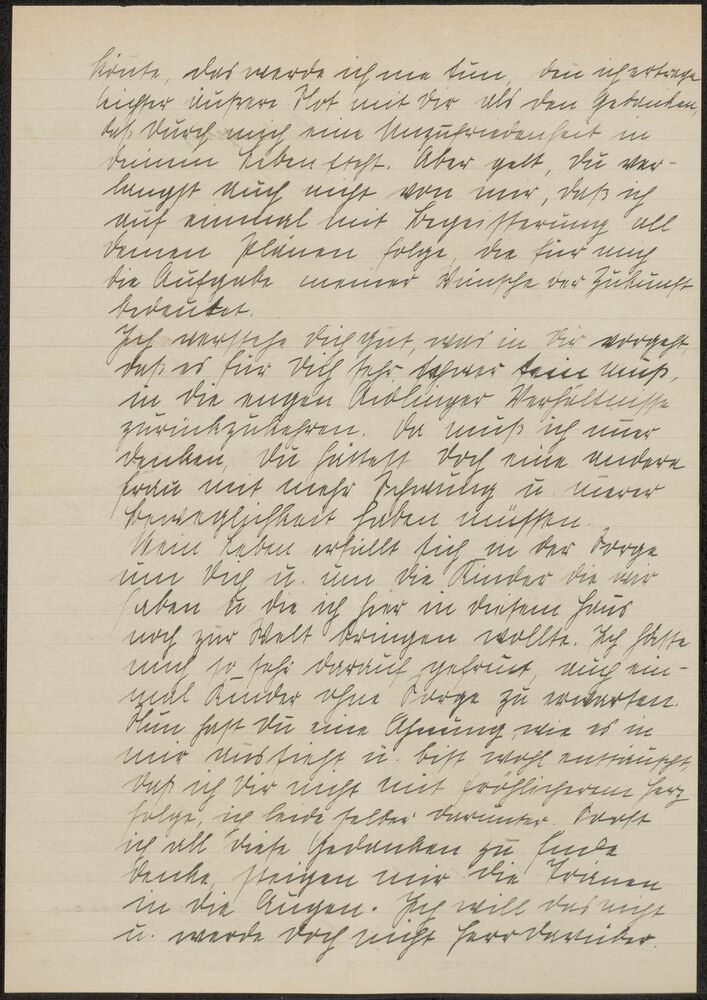 könnte, das werde ich nie tun, den ich ertrage
leichter äußere Not mit Dir als den Gedanken,
daß durch mich eine Unzufriedenheit in
deinem Leben steht. Aber gelt, Du ver-
langst auch nicht von mir, daß ich
auf einmal mit Begeisterung all
deinen Plänen folge, die für mich
die Aufgabe meiner Wünsche der Zukunft
bedeutet.
Ich verstehe Dich gut, was in Dir vorgeht,
daß es für Dich sehr schwer sein muß,
in die engen Aidlinger Verhältnisse
zurückzukehren. Da muß ich immer
denken, Du hättest doch eine andere
Frau mit mehr Schwung u. innerer
Beweglichkeit haben müssen.
Mein Leben erfüllt sich in der Sorge
um Dich u. um die Kinder die wir
haben u. die ich hier in diesem Haus
noch zur Welt bringen wollte. Ich hatte
mich so sehr darauf gefreut, auch ein-
mal Kinder ohne Sorge zu erwarten.
Nun hast Du eine Ahnung, wie es in
mir aussieht u. bist wohl enttäuscht,
daß ich Dir nicht mit fröhlicherem Herz
folge, ich leide selber darunter. Sooft
ich all diese Gedanken zu Ende
denke, steigen mir die Tränen
in die Augen. Ich will das nicht
u. werde doch nicht Herr darüber.